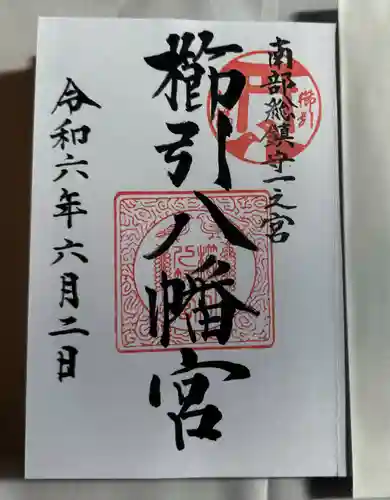 南部総鎮守一之宮
櫛引八幡宮
令和六年六月二日